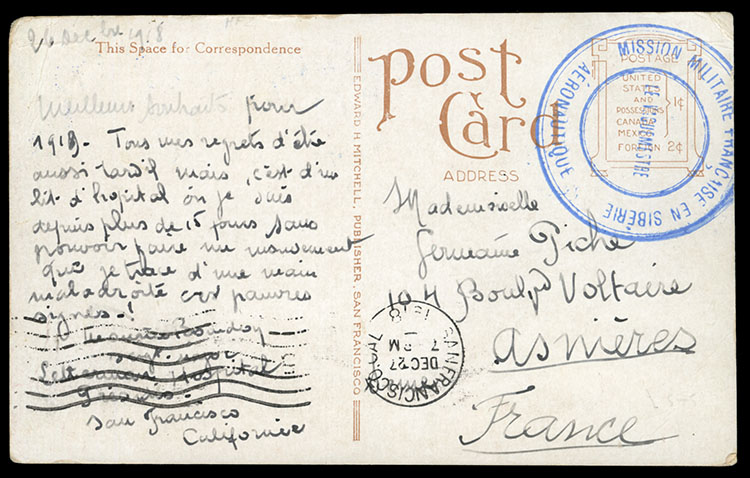 26 Dec bre 1918
This Space for Correspondence
Meilleurs souhaits pour
1919. Tous mes regrets d'être
aussi tardif mais, c'est d'un
lit d'hôpital où je suis
depuis plus de 15 jours sans
pouvoir faire un mouvement
que je trace d'une main
maladroite ces pauvres
signes!
Letterman Hospital
Presidio
San Francisco
Californie
EDWARD H. MITCHELL, PUBLISHER, SAN FRANCISCO
Post
Card
ADDRESS
POSTAGE
UNITED
STATES
AND
POSSESSIONS
CANADA
MEXICO
1¢
FOREIGN 2¢
MISSION MILITAIRE FRANÇAISE EN SIBÉRIE
AÉRONAUTIQUE
LE VAGUEMESTRE
Mademoiselle
Germaine Piché
104 Boulvd Voltaire
Asnières
Seine
France
SAN FRANCISCO, CAL.
DEC 27
7 PM
1918